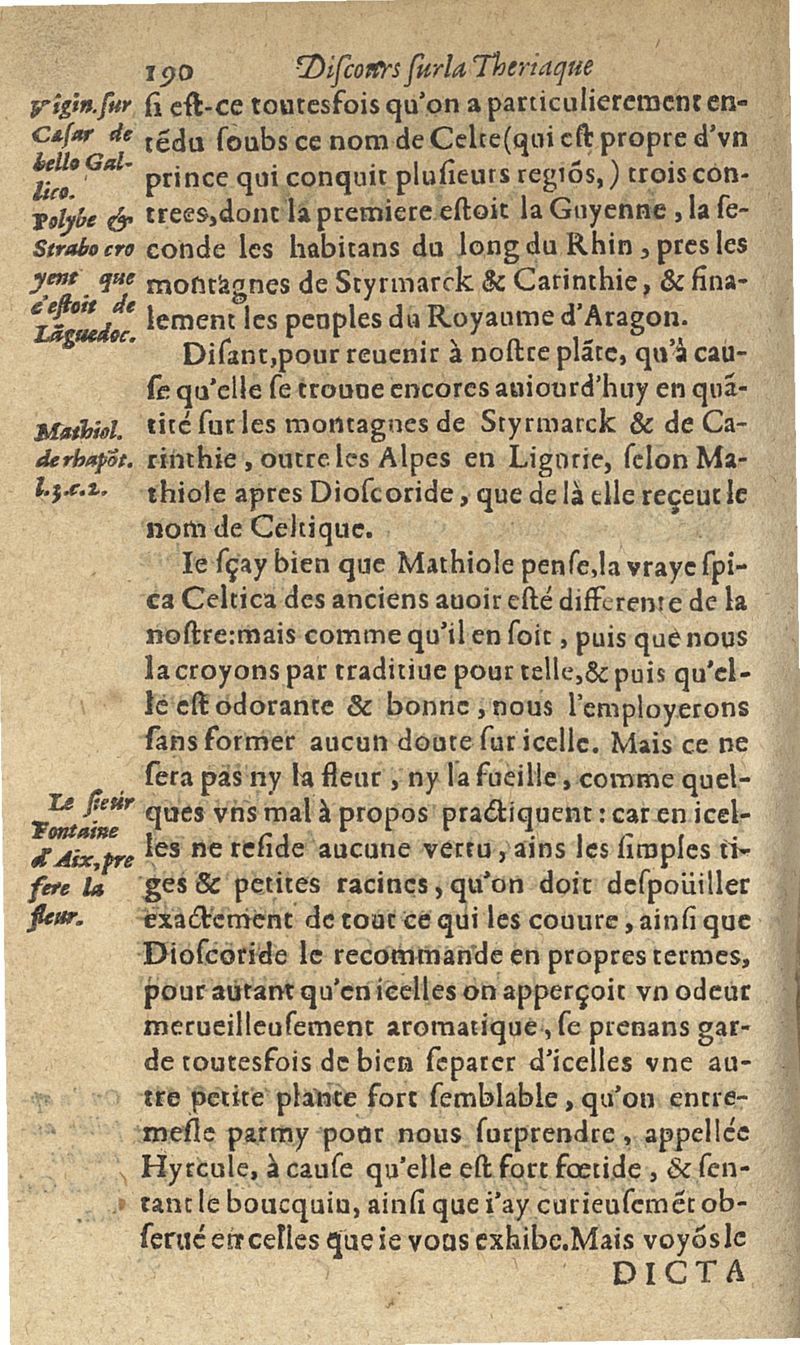 190 Diſcours ſur la Theriaque
Vigin. ſur
Cæſar de
bello Gal-
lico.
Polybe &
Strabo cro
yent que
c'eſtoit de
Lãguedoc.
ſi eſt-ce toutesfois qu'on a particulierement en-
tẽdu ſoubs ce nom de Celte (qui eſt propre d'vn
prince qui conquit pluſieurs regiõs,) trois con-
trees, dont la premiere eſtoit la Guyenne, la ſe-
conde les habitans du long du Rhin, pres les
montagnes de Styrmarck & Carinthie, & fina-
lement les peuples du Royaume d'Aragon.
Diſant, pour reuenir à noſtre plãte, qu'à cau-
ſe qu'elle ſe trouue encores auiourd'huy en quã-
Mathiol.
de rhapõt.
l.3.c.2.
tité ſur les montagnes de Styrmarck & de Ca-
rinthie, outre les Alpes en Ligurie, ſelon Ma-
thiole apres Dioſcoride, que de là elle reçeut le
nom de Celtique.
Ie ſçay bien que Mathiole penſe, la vraye ſpi-
ca Celtica des anciens auoir eſté differente de la
noſtre: mais comme qu'il en ſoit, puis que nous
la croyons par traditiue pour telle, & puis qu'el-
le eſt odorante & bonne, nous l'employerons
ſans former aucun doute ſur icelle. Mais ce ne
ſera pas ny la fleur, ny la fueille, comme quel-
Le ſieur
Fontaine
d'Aix, pre
fere la
fleur.
ques vns mal à propos practiquent: car en icel-
les ne reſide aucune vertu, ains les ſimples ti-
ges & petites racines, qu'on doit deſpoüiller
exactement de tout ce qui les couure, ainſi que
Dioſcoride le recommande en propres termes,
pour autant qu'en icelles on apperçoit vn odeur
merueilleuſement aromatique, ſe prenans gar-
de toutesfois de bien ſeparer d'icelles vne au-
tre petite plante fort ſemblable, qu'on entre-
meſle parmy pour nous ſurprendre, appellée
Hyrcule, à cauſe qu'elle eſt fort fœtide, & ſen-
tant le boucquin, ainſi que i'ay curieuſemẽt ob-
ſerué en celles que ie vous exhibe. Mais voyõs le
DICTA